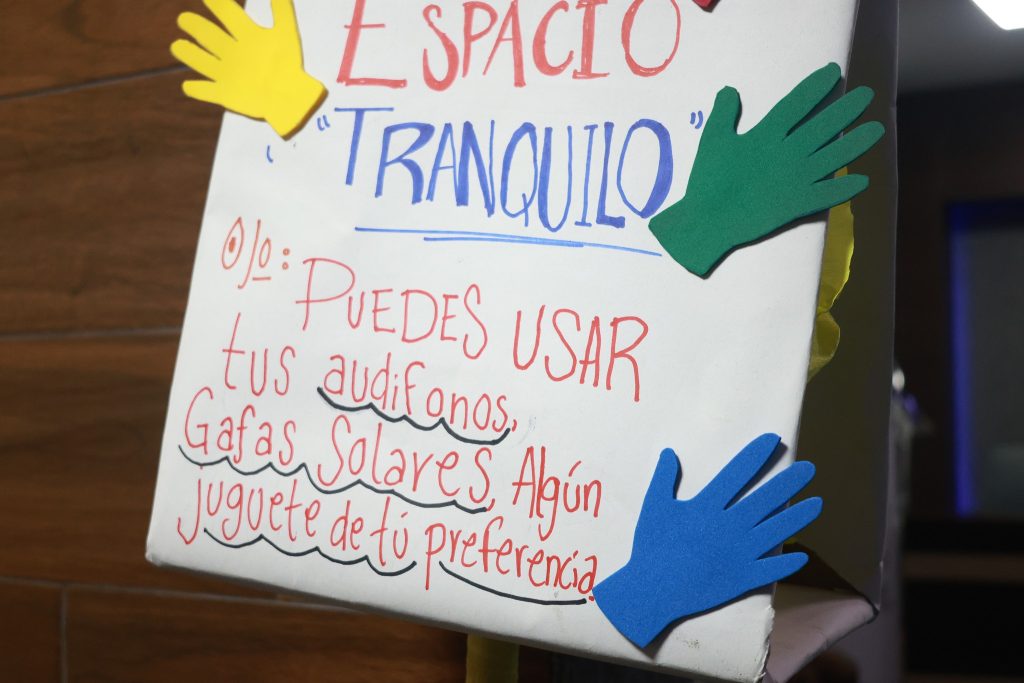 ESPACIO
"TRANQUILO"
Ojo: PUEDES USAR
tus audifonos,
Gafas Solares, Algún
juguete de tú preferencia.